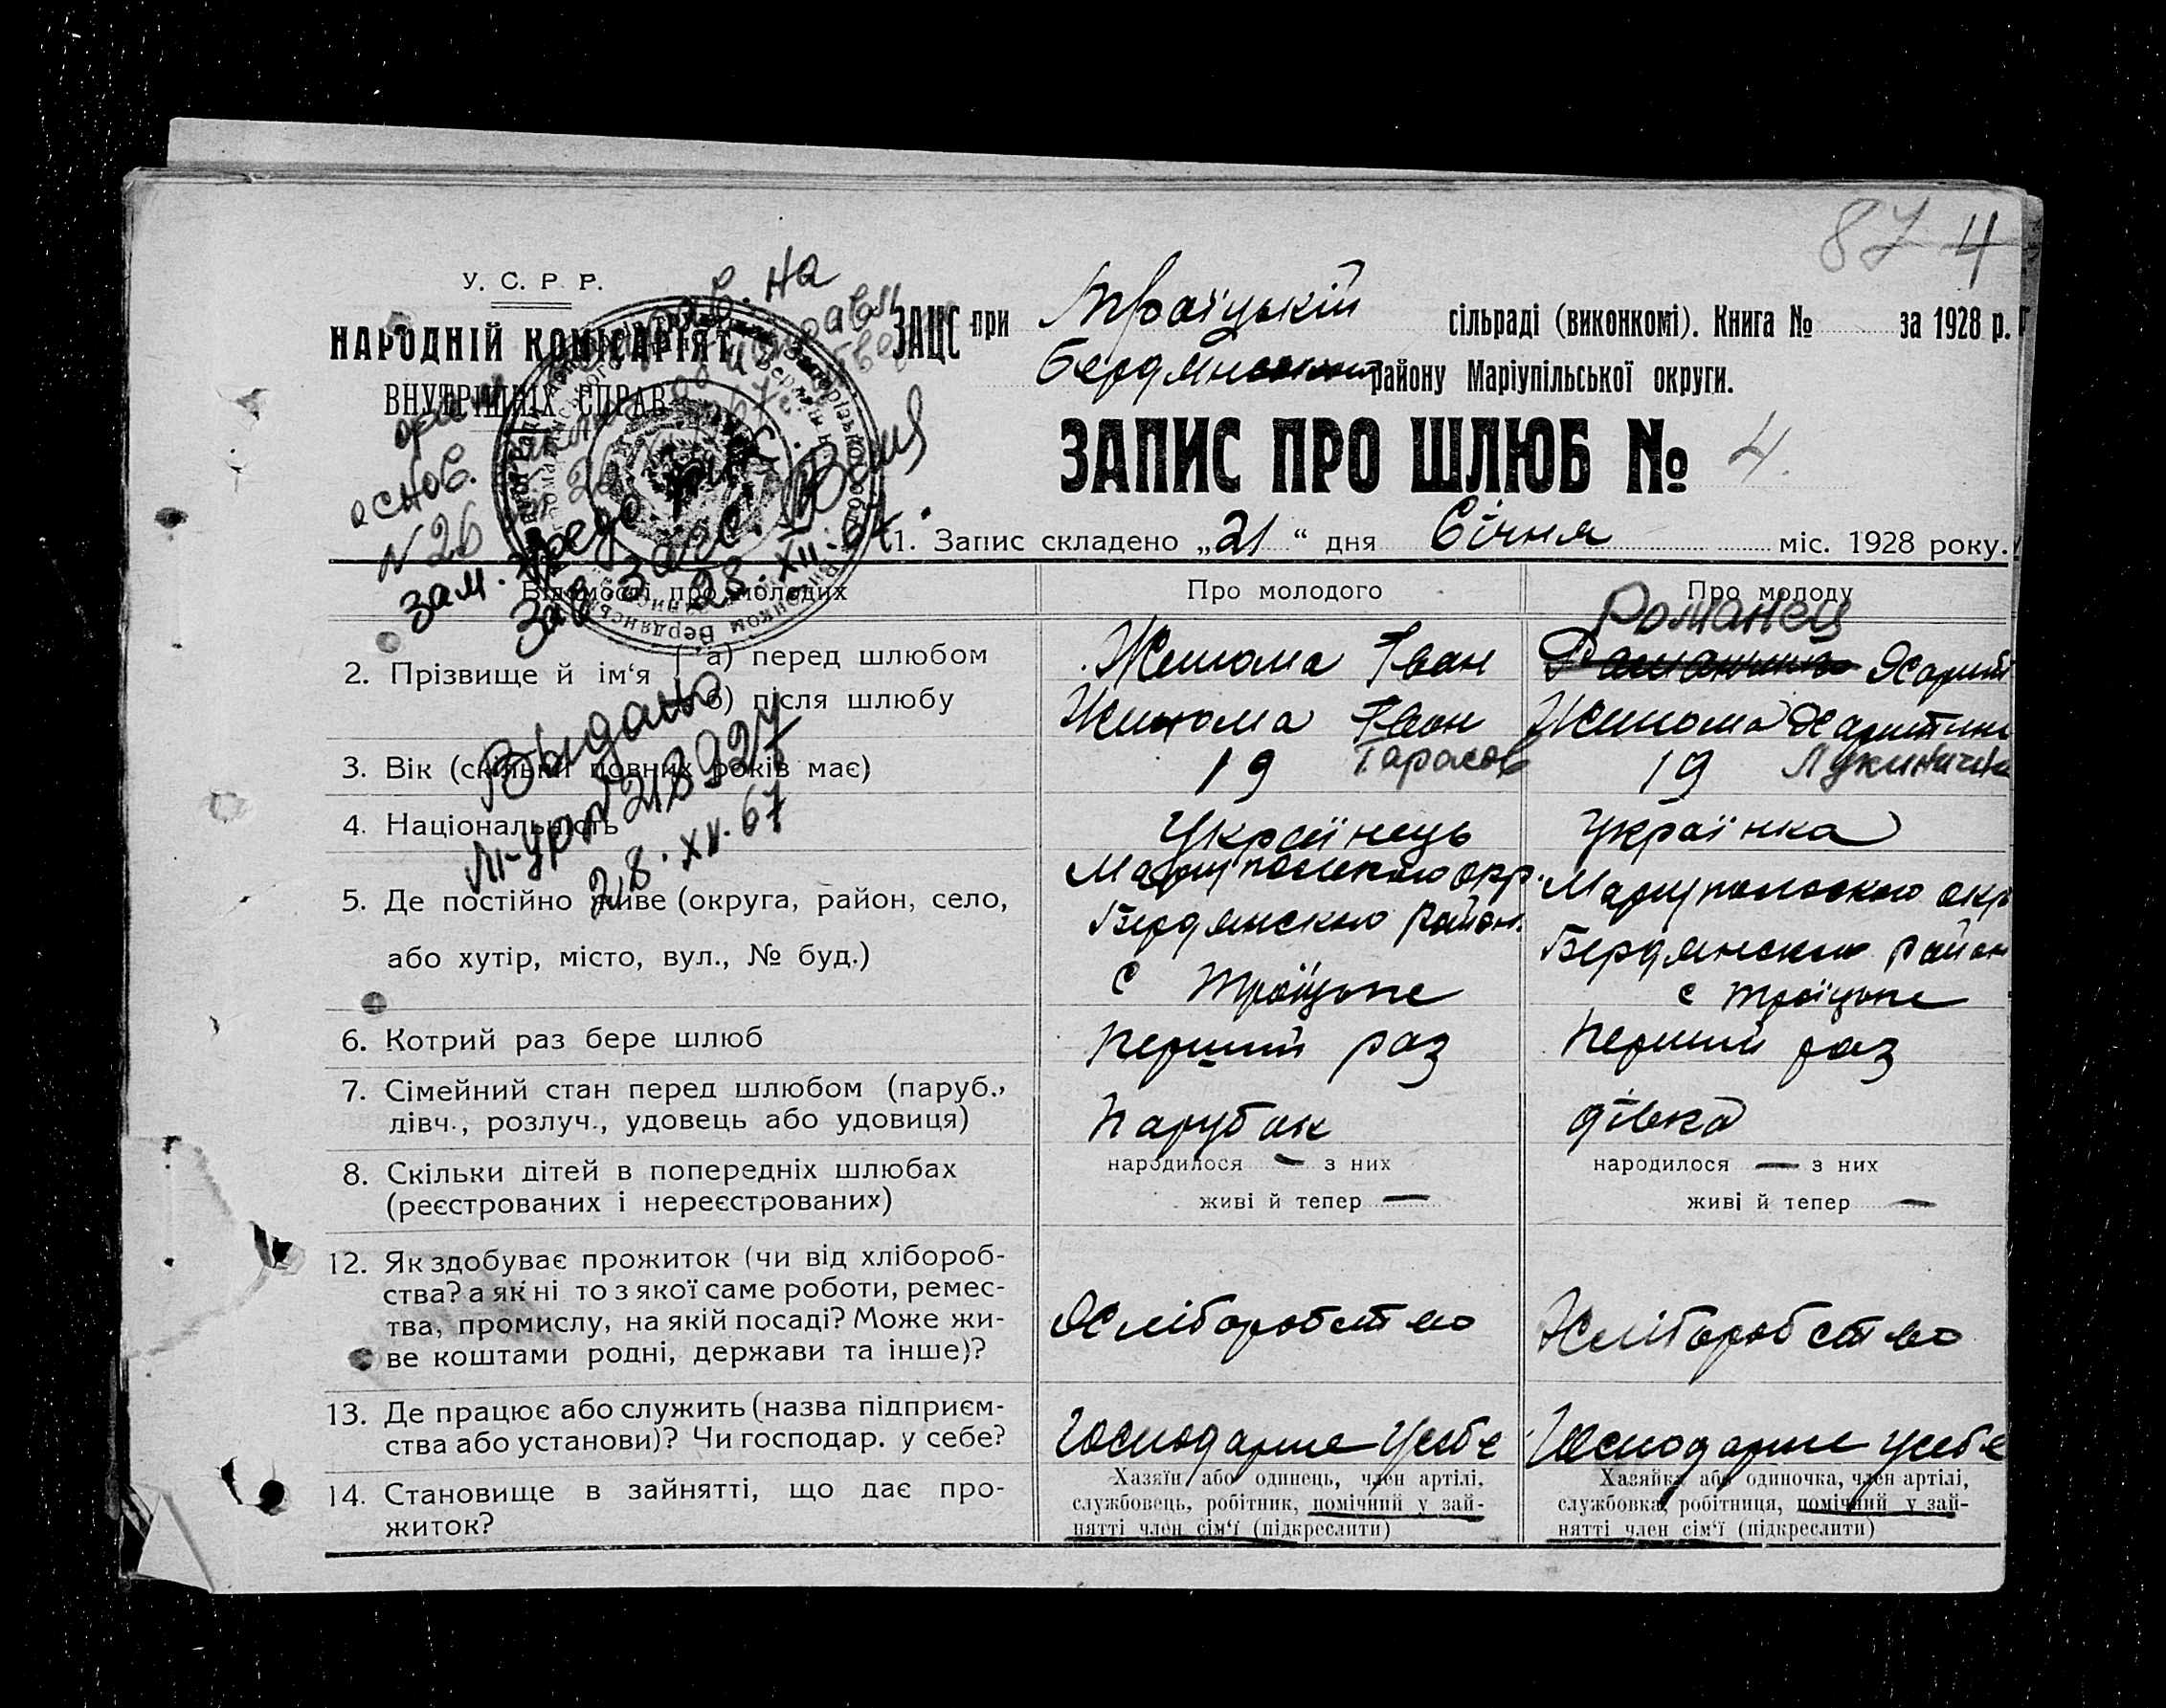 87 4
У. С. Р. Р.
НАРОДНІЙ КОМІСАРІЯТ
ВНУТРІШНІХ СПРАВ
ЗАЦС при Троїцькій сільраді (виконкомі). Книга № за 1928 р.
Бердянського району Маріупільської округи.
ЗАПИС ПРО ШЛЮБ № 4.
1. Запис складено „21“ дня Січня міс. 1928 року.
на
основ.
N 26
зам.
Зав. Загс.
28.XII.67
Відомості про молодих
Про молодого
Про молоду
Романец
2. Прізвище й ім‘я
а) перед шлюбом
Жешома Іван
Харит
б) після шлюбу
Жешома Іван
Жешома Харитина
3. Вік (скільки повних років має)
19 Тарасов
19 Лукинична
Выдано
№ 218927
28.XII.67
4. Національність
Українець
Українка
5. Де постійно живе (округа, район, село,
або хутір, місто, вул., № буд.)
Мариупольского окр.
Бердянского район.
С Троїцьке
Мариупольского окр
Бердянского район
с Троїцьке
6. Котрий раз бере шлюб
Перший раз
Перший раз
7. Сімейний стан перед шлюбом (паруб.,
дівч., розлуч., удовець або удовиця)
Парубок
дівка
8. Скільки дітей в попередніх шлюбах
(реєстрованих і нереєстрованих)
народилося — з них
живі й тепер —
народилося — з них
живі й тепер —
12. Як здобуває прожиток (чи від хлібороб-
ства? а як ні то з якої саме роботи, ремес-
тва, промислу, на якій посаді? Може жи-
ве коштами родні, держави та інше)?
Хліборобство
Хліборобство
13. Де працює або служить (назва підприєм-
ства або установи)? Чи господар. у себе?
Господарше усебе
Господарше усебе
14. Становище в зайнятті, що дає про-
житок?
Хазяїн або одинець, член артілі,
службовець, робітник, помічний у зай-
нятті член сім‘ї (підкреслити)
Хазяйка або одиночка, член артілі,
службовка, робітниця, помічний у зай-
нятті член сім‘ї (підкреслити)